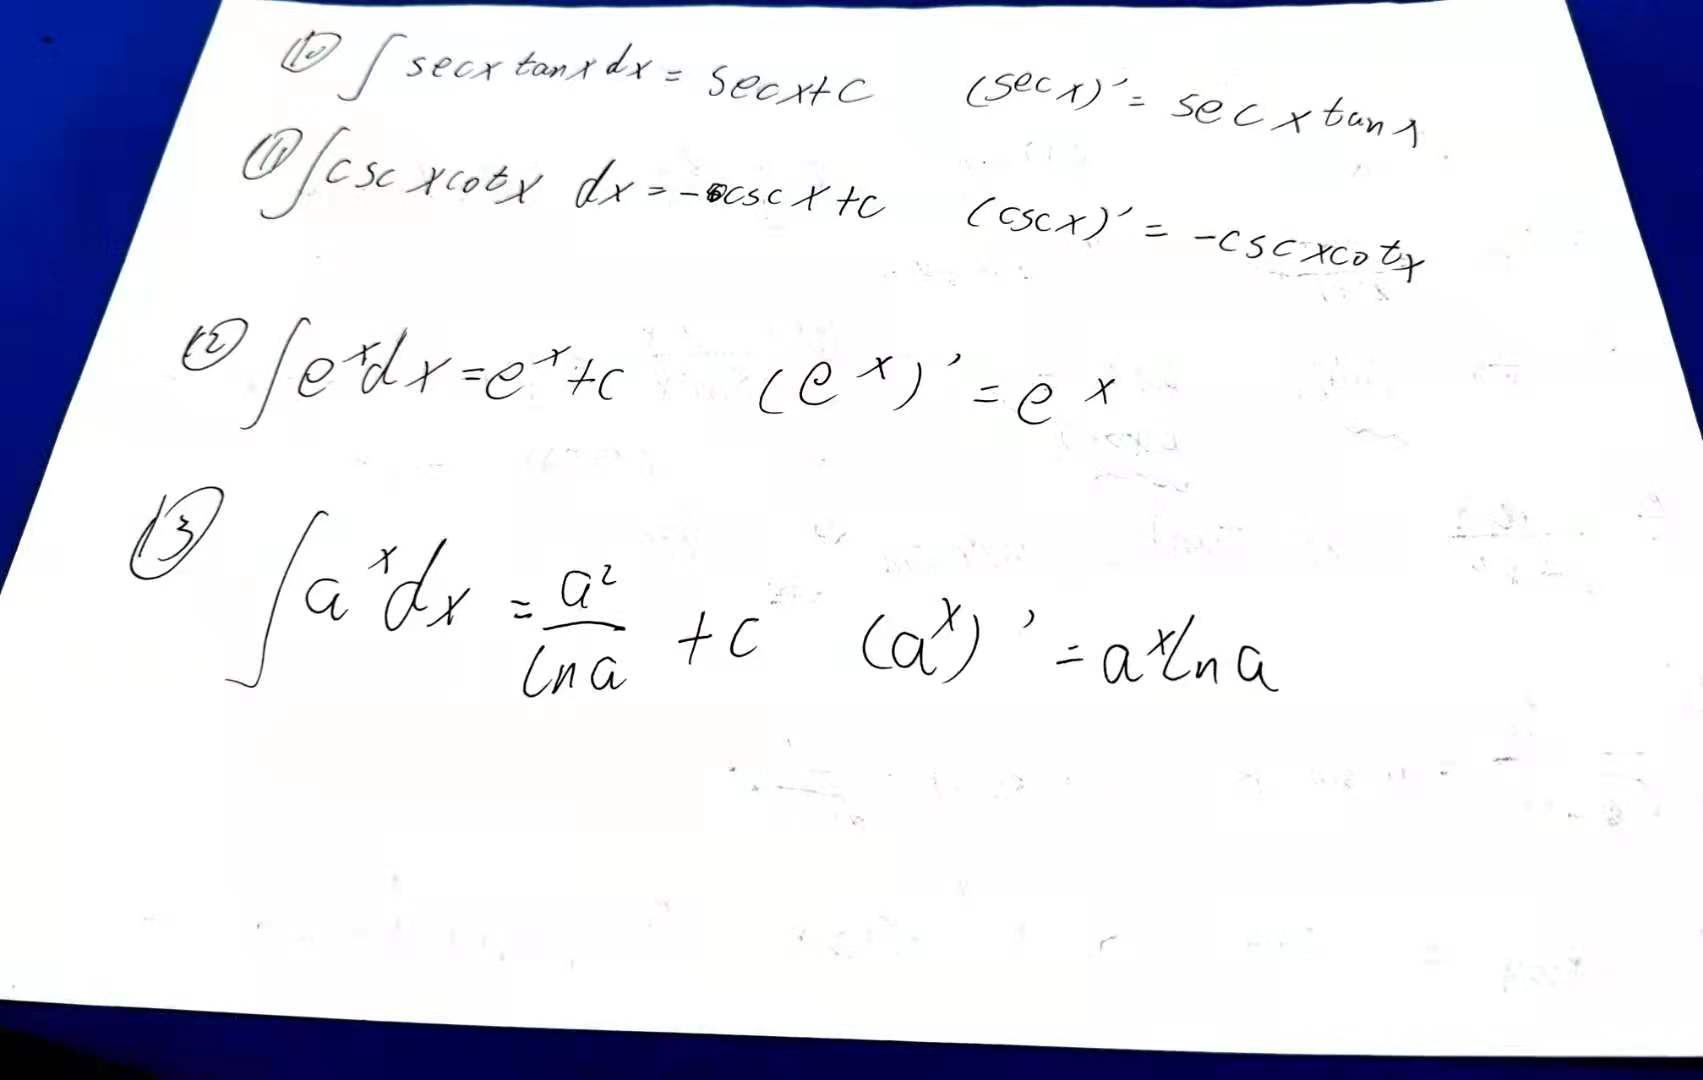 ⑩ ∫ secx tanx dx = secx+c (secx)' = secx tanx
⑪ ∫ cscxcotx dx = -cscx+c (cscx)' = -cscxcotx
⑫ ∫e^x dx = e^x+c (e^x)' = e^x
⑬ ∫a^x dx = a²/lna +c (a^x)' = a^x lna